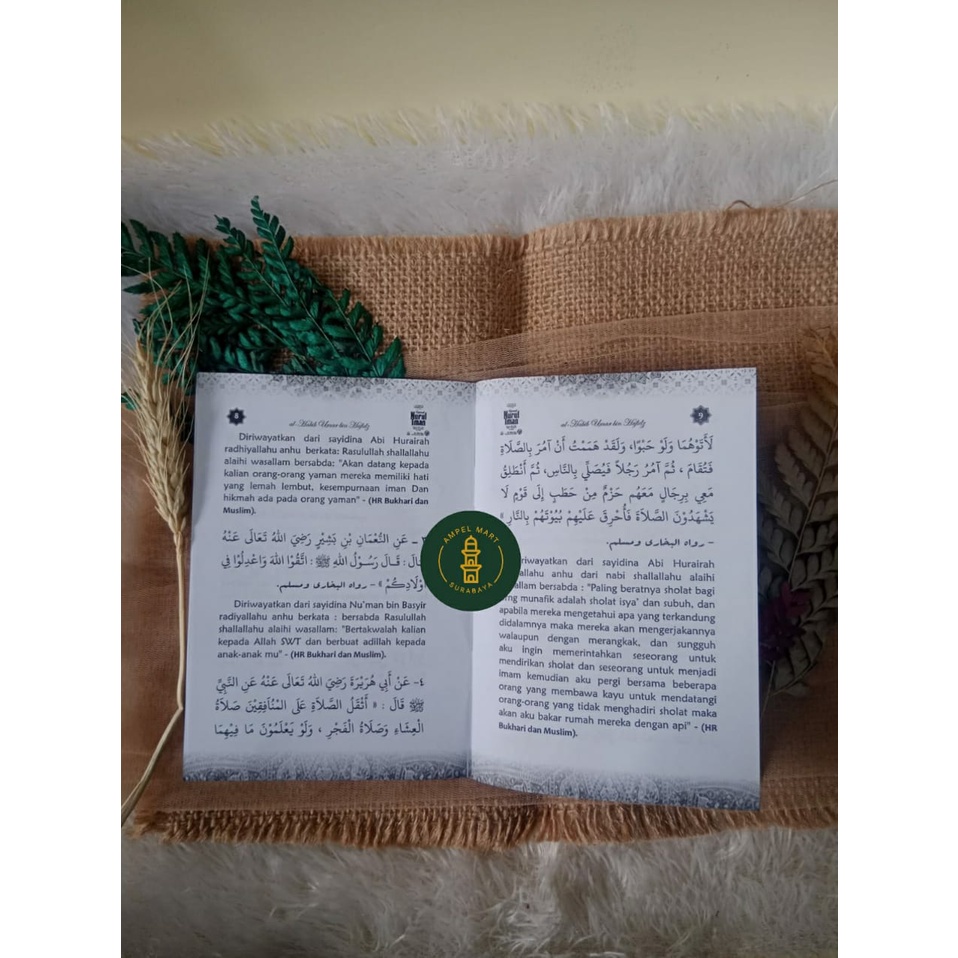 8
al-Habib Umar bin Hafidz
Nurul
Iman
Diriwayatkan dari sayidina Abi Hurairah
radhiyallahu anhu berkata: Rasulullah shallallahu
alaihi wasallam bersabda: "Akan datang kepada
kalian orang-orang yaman mereka memiliki hati
yang lemah lembut, kesempurnaan iman Dan
hikmah ada pada orang yaman" - (HR Bukhari dan
Muslim).
عَنِ النُّعْمَانِ بْنِ بَشِيْرٍ رَضِيَ اللهُ تَعَالَى عَنْهُ
قَالَ : قَالَ رَسُوْلُ اللهِ ﷺ : اتَّقُوْا اللهَ وَاعْدِلُوْا فِي
أَوْلَادِكُمْ » – رواه البخارى ومسلم.
Diriwayatkan dari sayidina Nu'man bin Basyir
radiyallahu anhu berkata : bersabda Rasulullah
shallallahu alaihi wasallam: "Bertakwalah kalian
kepada Allah SWT dan berbuat adillah kepada
anak-anak mu" - (HR Bukhari dan Muslim).
٤- عَنْ أَبِي هُرَيْرَةَ رَضِيَ اللهُ تَعَالَى عَنْهُ عَنِ النَّبِيِّ
ﷺ قَالَ : « أَثْقَلُ الصَّلَاةِ عَلَى الْمُنَافِقِيْنَ صَلَاةُ
الْعِشَاءِ وَصَلَاةُ الْفَجْرِ ، وَلَوْ يَعْلَمُوْنَ مَا فِيْهِمَا
al-Habib Umar bin Hafidz
Nurul
Iman
9
لَأَتَوْهُمَا وَلَوْ حَبْوًا، وَلَقَدْ هَمَمْتُ أَنْ آمُرَ بِالصَّلَاةِ
فَتُقَامَ ، ثُمَّ آمُرُ رَجُلاً فَيُصَلِّي بِالنَّاسِ، ثُمَّ أَنْطَلِقُ
مَعِي بِرِجَالٍ مَعَهُم حَزْمٌ مِنْ حَطَبٍ إِلَى قَوْمٍ لَا
يَشْهَدُوْنَ الصَّلَاةَ فَأُحْرِقَ عَلَيْهِمْ بُيُوْتَهُمْ بِالنَّارِ »
– رواه البخارى ومسلم.
riwayatkan dari sayidina Abi Hurairah
yallahu anhu dari nabi shallallahu alaihi
allam bersabda : "Paling beratnya sholat bagi
ng munafik adalah sholat isya' dan subuh, dan
apabila mereka mengetahui apa yang terkandung
didalamnya maka mereka akan mengerjakannya
walaupun dengan merangkak, dan sungguh
aku ingin memerintahkan seseorang untuk
mendirikan sholat dan seseorang untuk menjadi
imam kemudian aku pergi bersama beberapa
orang yang membawa kayu untuk mendatangi
orang-orang yang tidak menghadiri sholat maka
akan aku bakar rumah mereka dengan api" - (HR
Bukhari dan Muslim).
AMPEL MART
SURABAYA